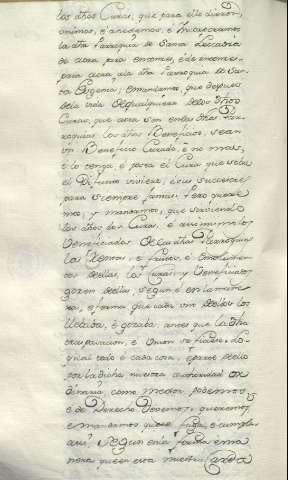 los dhos Curas, que para ello dieron,
è anedemos, è Incorporamos
la dha Parroquia de Santa Leocadia
de aora para entonces, è de entonces
para aora, ala dha Parroquia de San-
ta Eugenia; è mandamos, que despues
dela vida de qualquiera delos dhos
Curas, que aora son enlas dhas Par-
roquias los dhos Beneficios, sean
un Beneficio Curado, è no mas,
è lo tenga, è posea el Cura que
el Difunto viviere, è sus successores
para siempre jamas. Pero quere-
mos, y mandamos, que sirviendo
los dhos dos Curas, è assimismo
Beneficiados delas dhas Parroquias
las Rentas, è frutos, è Emolumen-
tos dellas, los Curas, y Beneficiados
gozen dellas, segun è en la mane-
ra, è forma que cada uno dellos los
llebaba, è gozaba antes que la dha
è Union se ficiese. Lo
qual todo è cada cosa, è parte dello
por la dicha nuestra authoridad or-
dinaria, como mejor podemos,
è de Derecho Devemos, queremos,
è mandamos que se faga, è cumpla
assi, segun en la forma è ma-
nera que en esta nuestra Carta